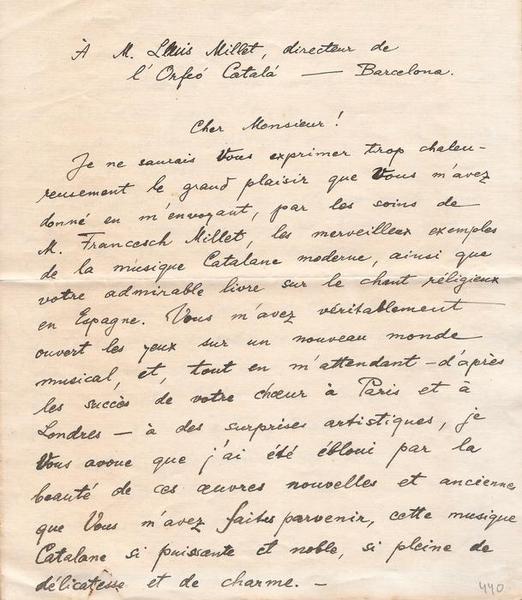 À M. Lluis Millet, directeur de
l'Orfeó Catalá — Barcelona.
Cher Monsieur!
Je ne saurais Vous exprimer trop chaleu-
reusement le grand plaisir que Vous m'avez
donné en m'envoyant, par les soins de
M. Francesch Millet, les merveilleux exemples
de la musique Catalane moderne, ainsi que
votre admirable livre sur le chant réligieux
en Espagne. Vous m'avez véritablement
ouvert les yeux sur un nouveau monde
musical, et, tout en m'attendant – d'après
les succès de votre chœur à Paris et à
Londres – à des surprises artistiques, je
Vous avoue que j'ai été ébloui par la
beauté de ces œuvres nouvelles et anciennes
que Vous m'avez faites parvenir, cette musique
Catalane si puissante et noble, si pleine de
délicatesse et de charme. –
440